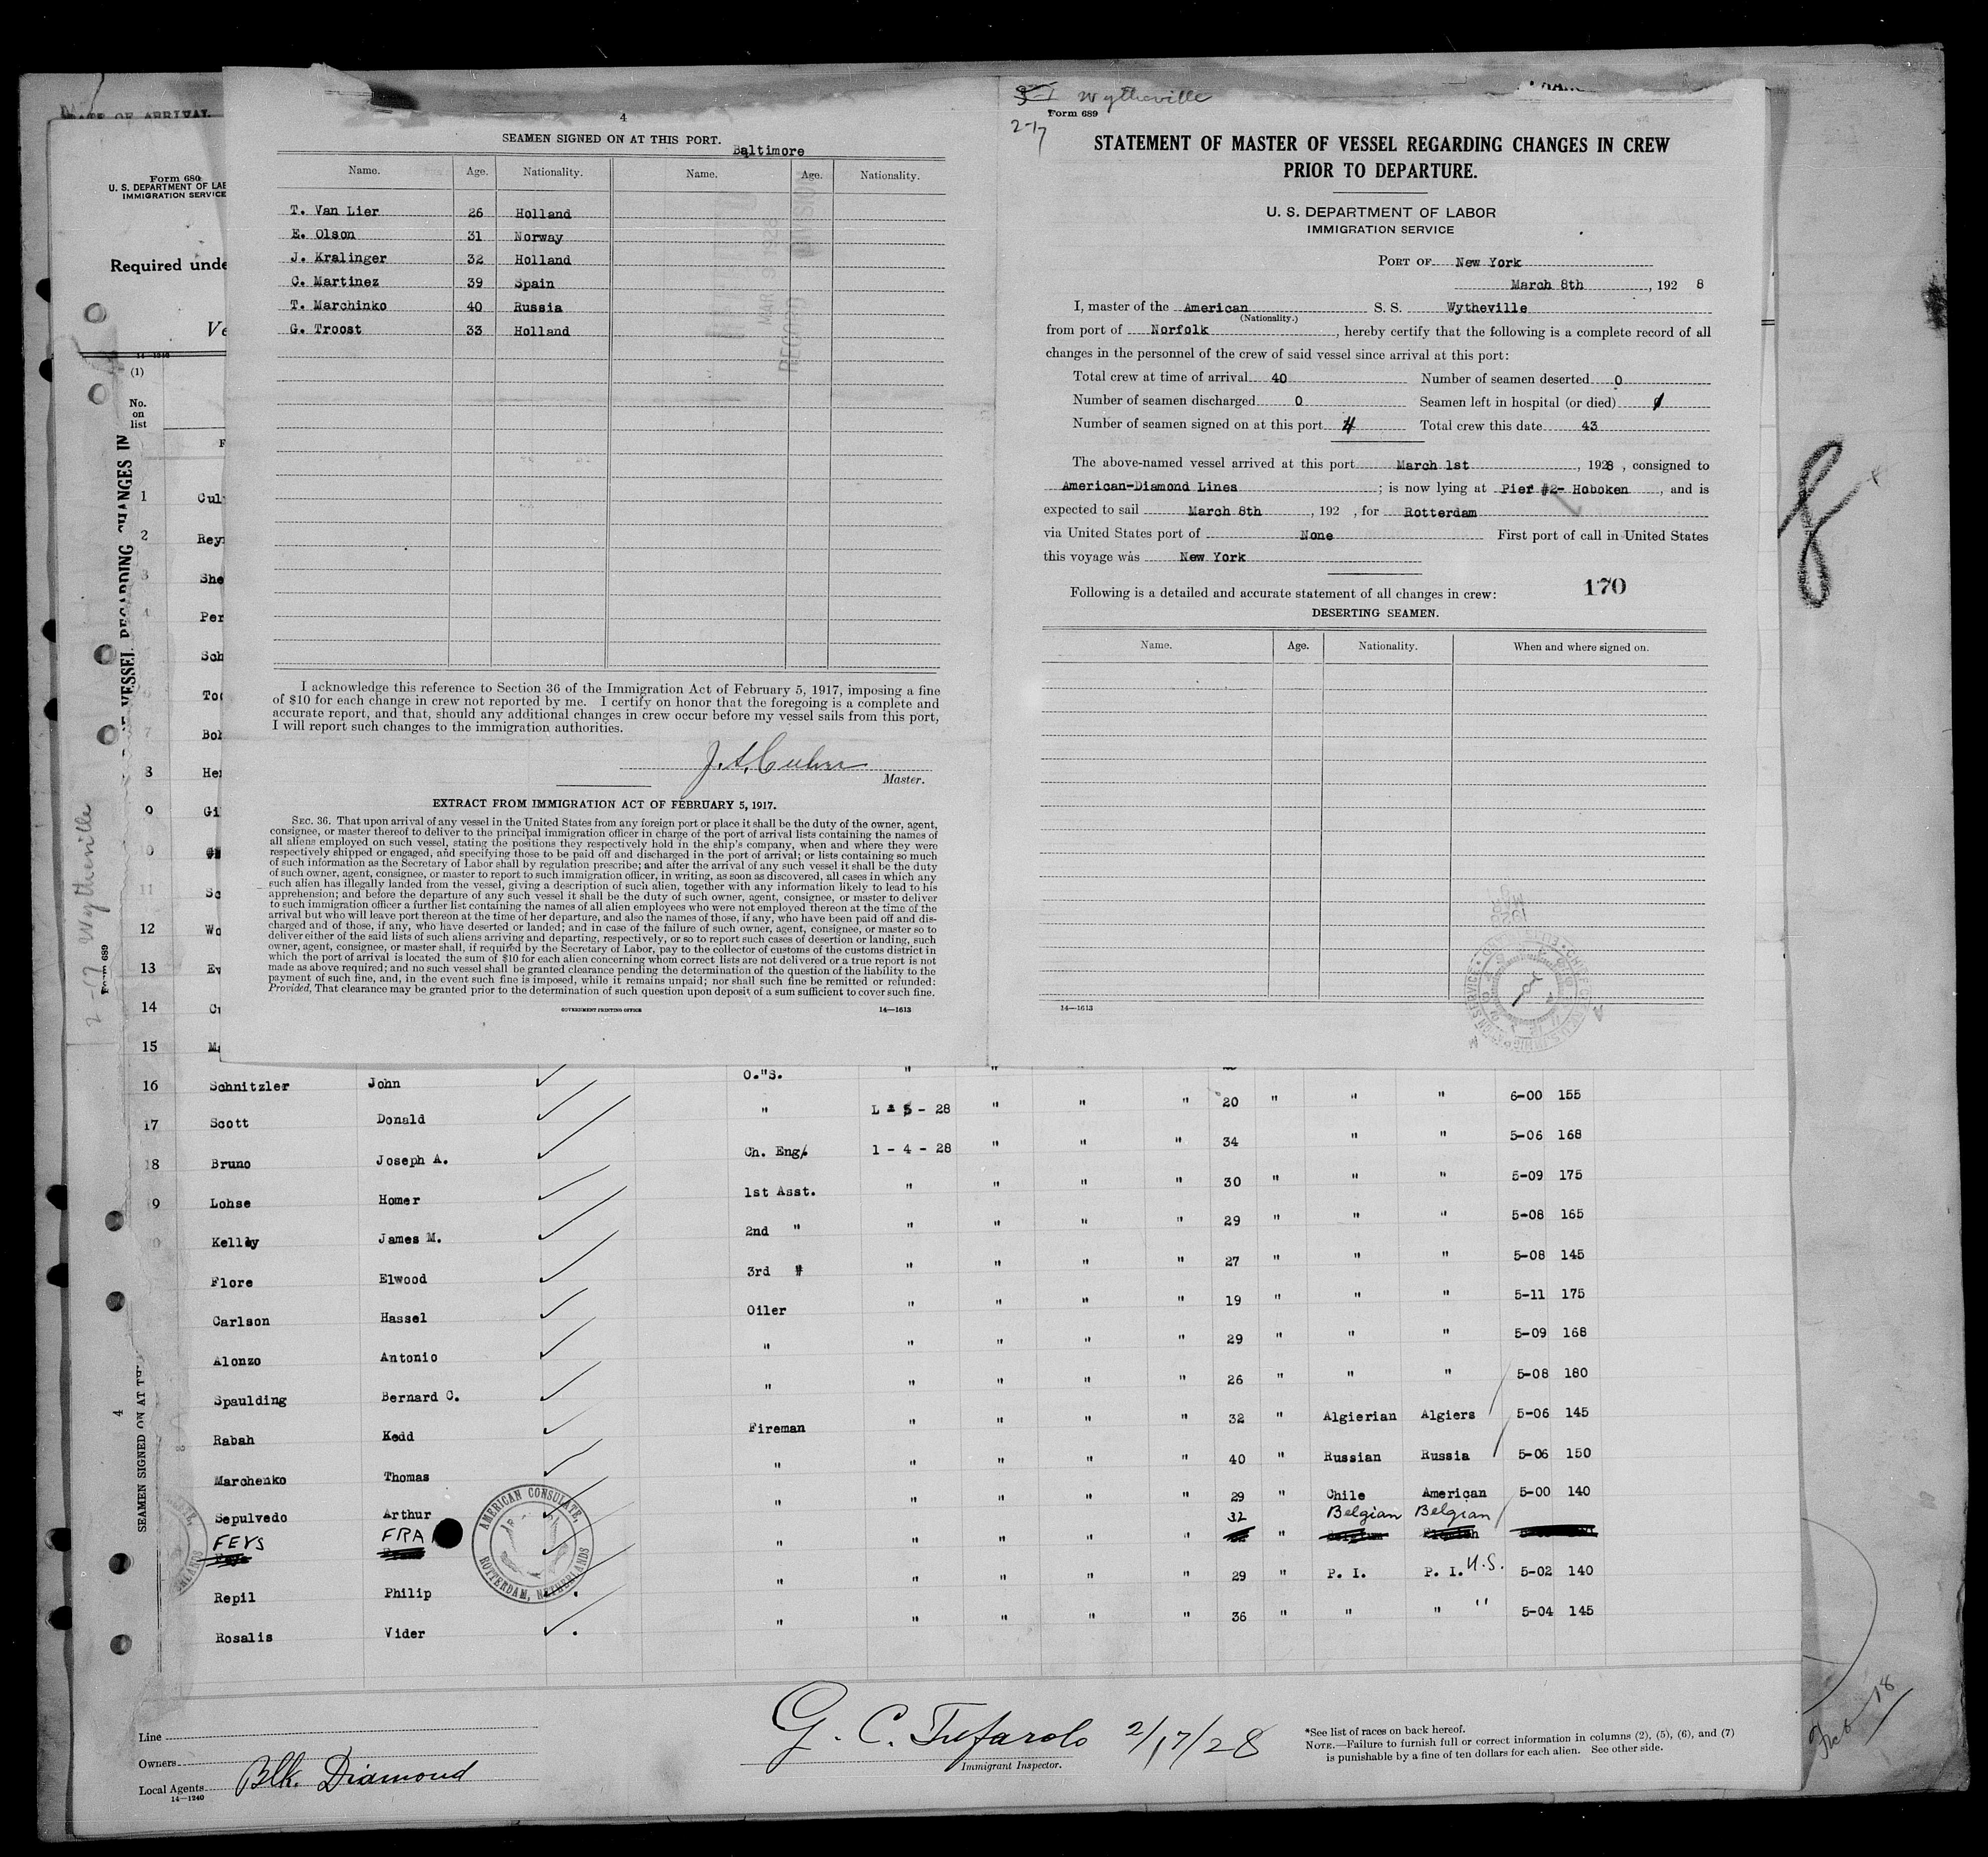 4
SEAMEN SIGNED ON AT THIS PORT.
Baltimore
Name. Age. Nationality. Name. Age. Nationality.
T. Van Lier 26 Holland
E. Olson 31 Norway
J. Kralinger 32 Holland
C. Martinez 39 Spain
T. Marchinko 40 Russia
G. Troost 33 Holland
I acknowledge this reference to Section 36 of the Immigration Act of February 5, 1917, imposing a fine
of $10 for each change in crew not reported by me. I certify on honor that the foregoing is a complete and
accurate report, and that, should any additional changes in crew occur before my vessel sails from this port,
I will report such changes to the immigration authorities.
Master.
EXTRACT FROM IMMIGRATION ACT OF FEBRUARY 5, 1917.
SEC. 36. That upon arrival of any vessel in the United States from any foreign port or place it shall be the duty of the owner, agent,
consignee, or master thereof to deliver to the principal immigration officer in charge of the port of arrival lists containing the names of
all aliens employed on such vessel, stating the positions they respectively hold in the ship's company, when and where they were
respectively shipped or engaged, and specifying those to be paid off and discharged in the port of arrival; or lists containing so much
of such information as the Secretary of Labor shall by regulation prescribe; and after the arrival of any such vessel it shall be the duty
of such owner, agent, consignee, or master to report to such immigration officer, in writing, as soon as discovered, all cases in which any
such alien has illegally landed from the vessel, giving a description of such alien, together with any information likely to lead to his
apprehension; and before the departure of any such vessel it shall be the duty of such owner, agent, consignee, or master to deliver
to such immigration officer a further list containing the names of all alien employees who were not employed thereon at the time of the
arrival but who will leave port thereon at the time of her departure, and also the names of those, if any, who have been paid off and dis-
charged and of those, if any, who have deserted or landed; and in case of the failure of such owner, agent, consignee, or master so to
deliver either of the said lists of such aliens arriving and departing, respectively, or so to report such cases of desertion or landing, such
owner, agent, consignee, or master shall, if required by the Secretary of Labor, pay to the collector of customs of the customs district in
which the port of arrival is located the sum of $10 for each alien concerning whom correct lists are not delivered or a true report is not
made as above required; and no such vessel shall be granted clearance pending the determination of the question of the liability to the
payment of such fine, and, in the event such fine is imposed, while it remains unpaid; nor shall such fine be remitted or refunded:
Provided, That clearance may be granted prior to the determination of such question upon deposit of a sum sufficient to cover such fine.
GOVERNMENT PRINTING OFFICE 14—1613
Wytheville
Form 689
2-17
STATEMENT OF MASTER OF VESSEL REGARDING CHANGES IN CREW
PRIOR TO DEPARTURE.
U. S. DEPARTMENT OF LABOR
IMMIGRATION SERVICE
PORT OF New York
March 8th, 192 8
I, master of the American S. S. Wytheville
(Nationality.)
from port of Norfolk, hereby certify that the following is a complete record of all
changes in the personnel of the crew of said vessel since arrival at this port:
Total crew at time of arrival 40 Number of seamen deserted 0
Number of seamen discharged 0 Seamen left in hospital (or died)
Number of seamen signed on at this port 4 Total crew this date 43
The above-named vessel arrived at this port March 1st, 1928, consigned to
American-Diamond Lines; is now lying at Pier #2- Hoboken, and is
expected to sail March 8th, 192 , for Rotterdam
via United States port of None First port of call in United States
this voyage was New York
Following is a detailed and accurate statement of all changes in crew: 170
DESERTING SEAMEN.
Name. Age. Nationality. When and where signed on.
14—1613
Form 680
U. S. DEPARTMENT OF LAB
IMMIGRATION SERVICE
Required unde
Ve
(1)
No.
on
list
1 Cul
2 Rey
3 She
4 Per
Sch
To
7 Bo
8 He
9 Gi
11 Sc
12 Wo
13 Ev
14
15
16 Schnitzler John O."S. " "
17 Scott Donald " 5 - 28 " " " 20 " " " 6-00 155
18 Bruno Joseph A. Ch. Eng. 1 - 4 - 28 " " " 34 " " 5-06 168
9 Lohse Homer 1st Asst. " " " " 30 " " " 5-09 175
Kelly James M. 2nd " " " " " 29 " " " 5-08 165
Flore Elwood 3rd " " " " " 27 " " " 5-08 145
Carlson Hassel Oiler " " " " 19 " " " 5-11 175
Alonzo Antonio " " " " " 29 " " " 5-09 168
Spaulding Bernard C. " " " " " 26 " " " 5-08 180
Rabah Kedd Fireman " " " " 32 " Algierian Algiers 5-06 145
Marchenko Thomas " " " " " 40 " Russian Russia 5-06 150
Sepulvedo Arthur " " " " " 29 " Chile American 5-00 140
FEYS FRA " " " " " 32 " Belgian Belgian
Repil Philip " " " " " 29 " P. I. P. I. U.S. 5-02 140
Rosalis Vider " " " " " 36 " " " " 5-04 145
AMERICAN CONSULATE,
ROTTERDAM, NETHERLANDS
Line
Owners
Local Agents Blk. Diamond
14—1240
G. C. Tufarolo 2/17/28
Immigrant Inspector.
*See list of races on back hereof.
NOTE.—Failure to furnish full or correct information in columns (2), (5), (6), and (7)
is punishable by a fine of ten dollars for each alien. See other side.
2-17 Wytheville
Form 689
VESSEL REGARDING CHANGES IN
4
SEAMEN SIGNED ON AT TH
8